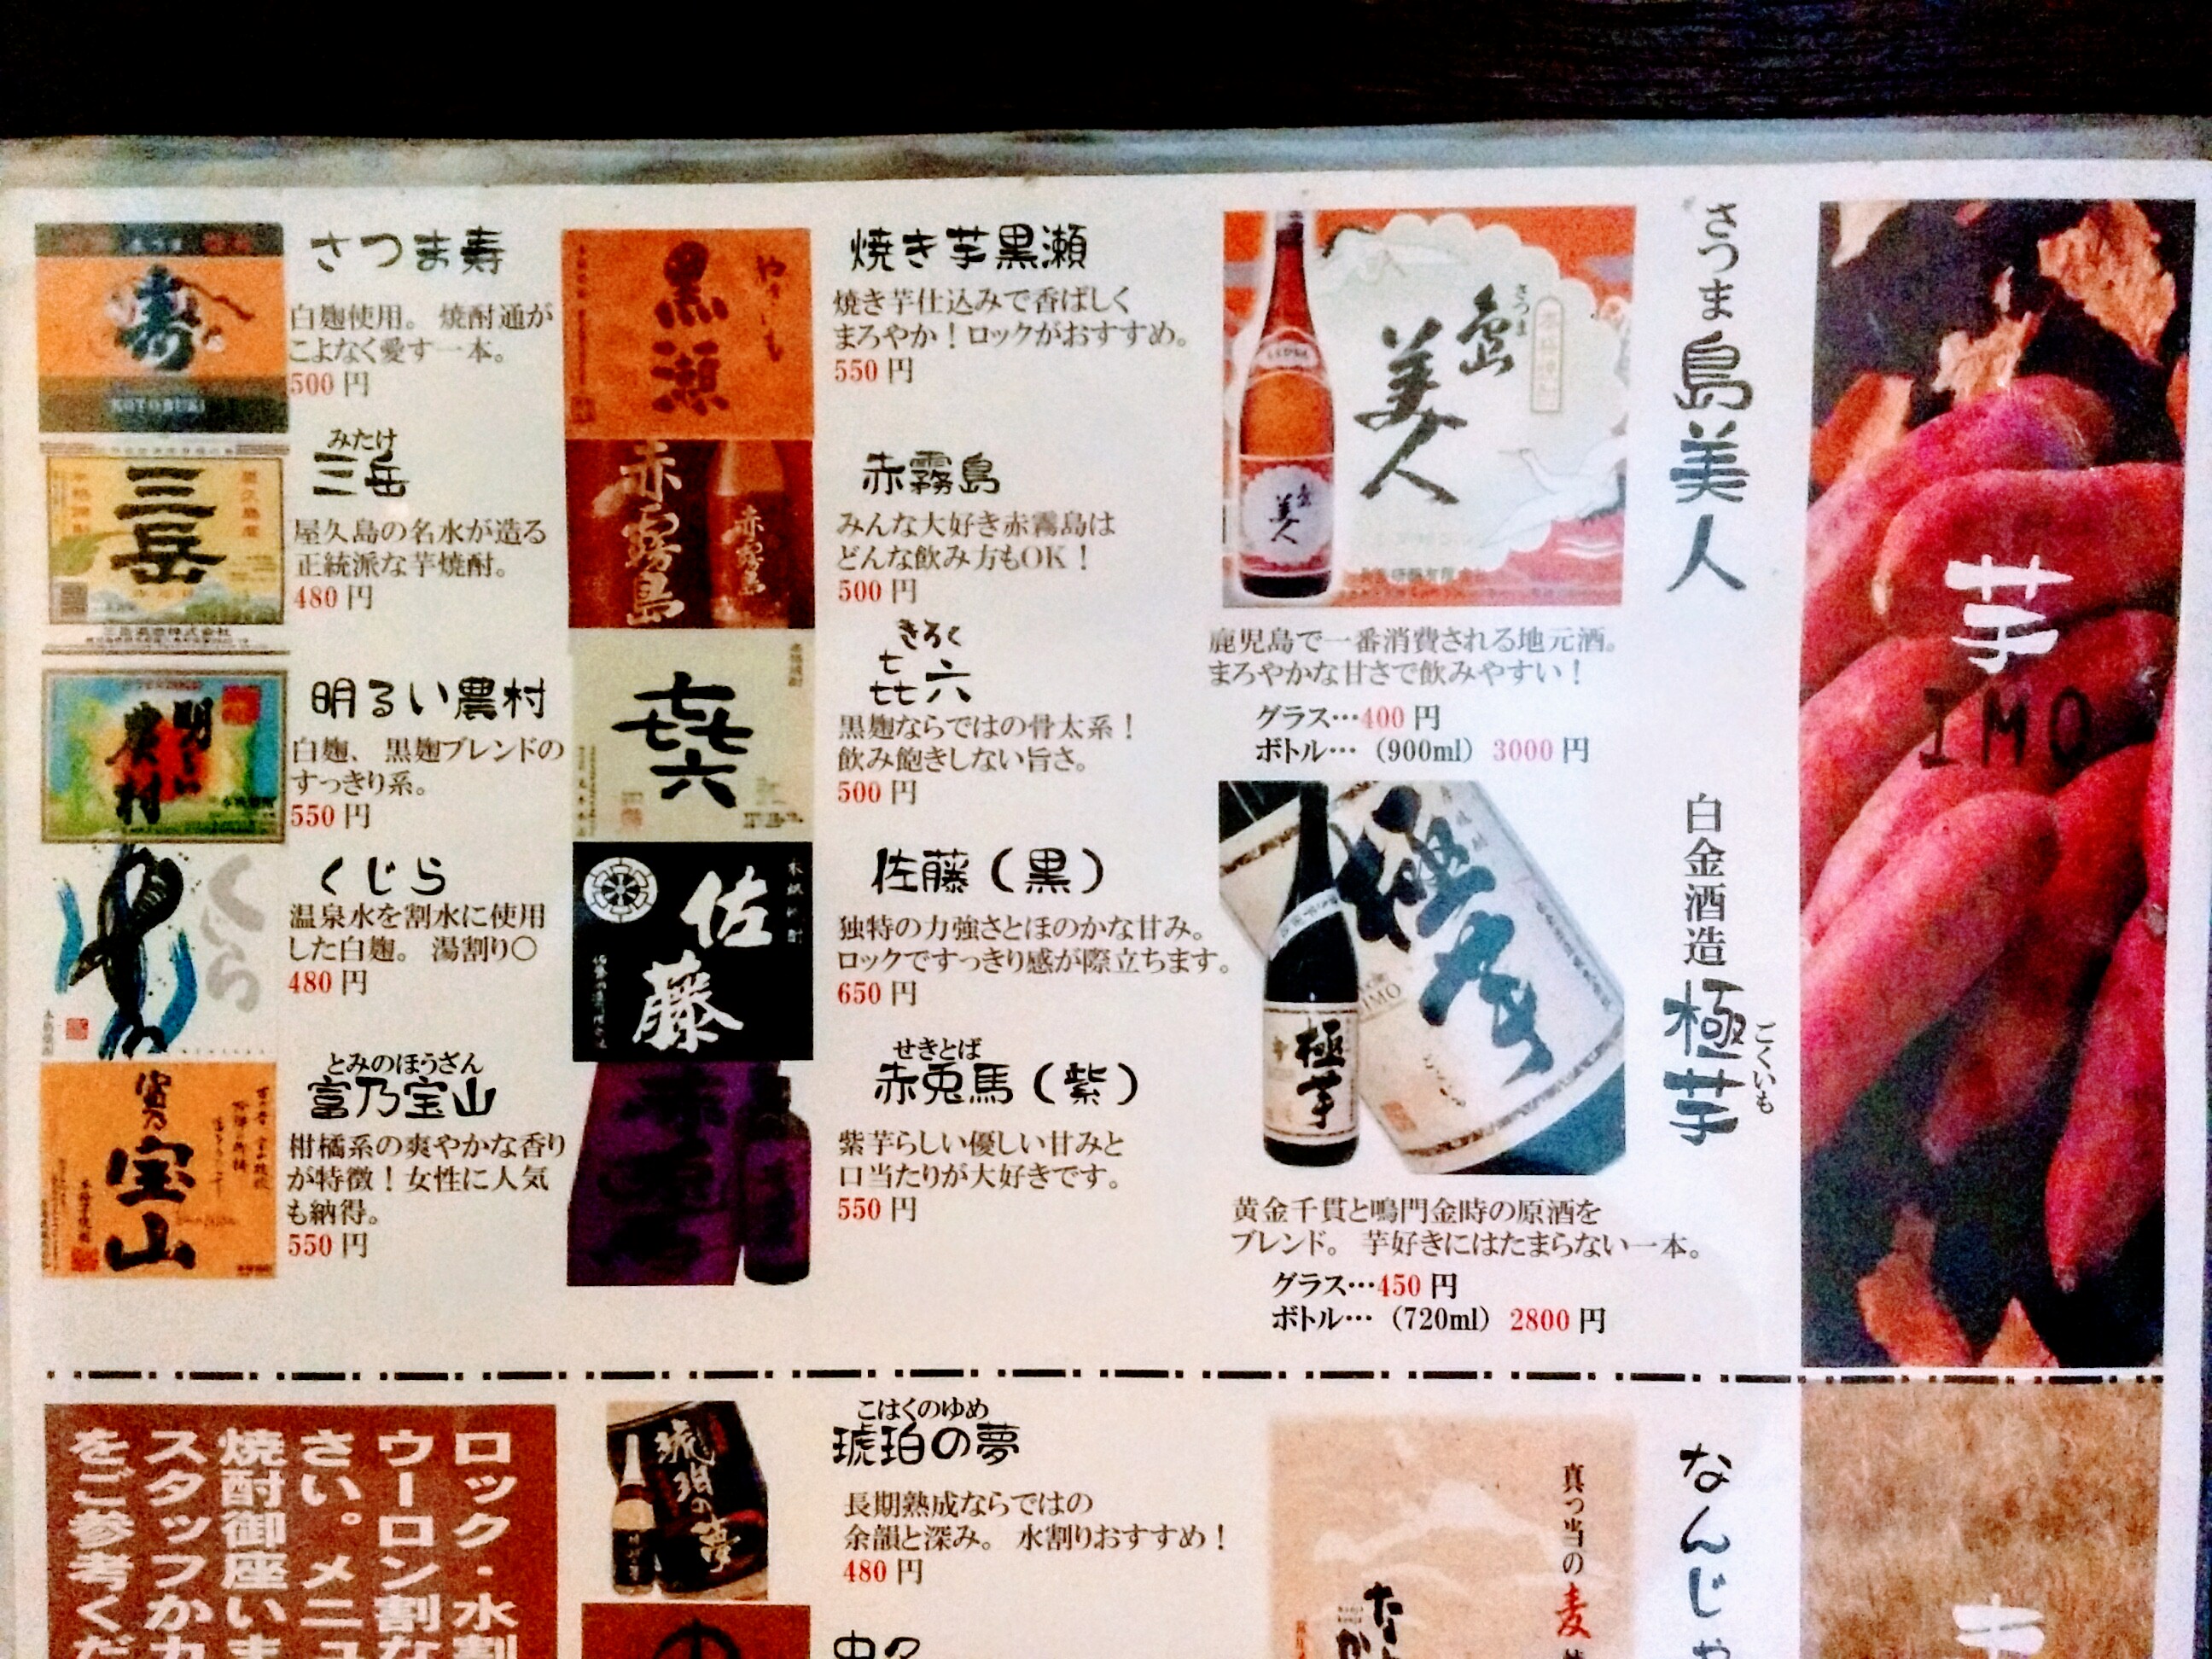 さつま寿
白麹使用。焼酎通が
こよなく愛す一本。
500 円
みたけ
三岳
屋久島の名水が造る
正統派な芋焼酎。
480 円
明るい農村
白麹、黒麹ブレンドの
すっきり系。
550 円
くじら
温泉水を割水に使用
した白麹。湯割り〇
480 円
とみのほうざん
富乃宝山
柑橘系の爽やかな香り
が特徴！女性に人気
も納得。
550 円
寿
KOTOBUKI
三岳
明るい
農村
くじら
富乃
宝山
焼き芋黒瀬
焼き芋仕込みで香ばしく
まろやか！ロックがおすすめ。
550 円
赤霧島
みんな大好き赤霧島は
どんな飲み方もOK！
500 円
きろく
㐂六
黒麹ならではの骨太系！
飲み飽きしない旨さ。
500 円
佐藤（黒）
独特の力強さとほのかな甘み。
ロックですっきり感が際立ちます。
650 円
せきとば
赤兎馬（紫）
紫芋らしい優しい甘みと
口当たりが大好きです。
550 円
やきいも
黒瀬
赤霧島
赤霧島
㐂六
佐藤
さつま島美人
さつま
島美人
鹿児島で一番消費される地元酒。
まろやかな甘さで飲みやすい！
グラス…400 円
ボトル…（900ml）3000 円
白金酒造 極芋
ごくいも
極芋
IMO
黄金千貫と鳴門金時の原酒を
ブレンド。芋好きにはたまらない一本。
グラス…450 円
ボトル…（720ml）2800 円
芋
IMO
ロック・水割
ウーロン割な
さい。メニュ
焼酎御座いま
スタッフか
をご参考くだ
こはくのゆめ
琥珀の夢
長期熟成ならではの
余韻と深み。水割りおすすめ！
480 円
琥珀の夢
真っ当の麦
なんじゃ